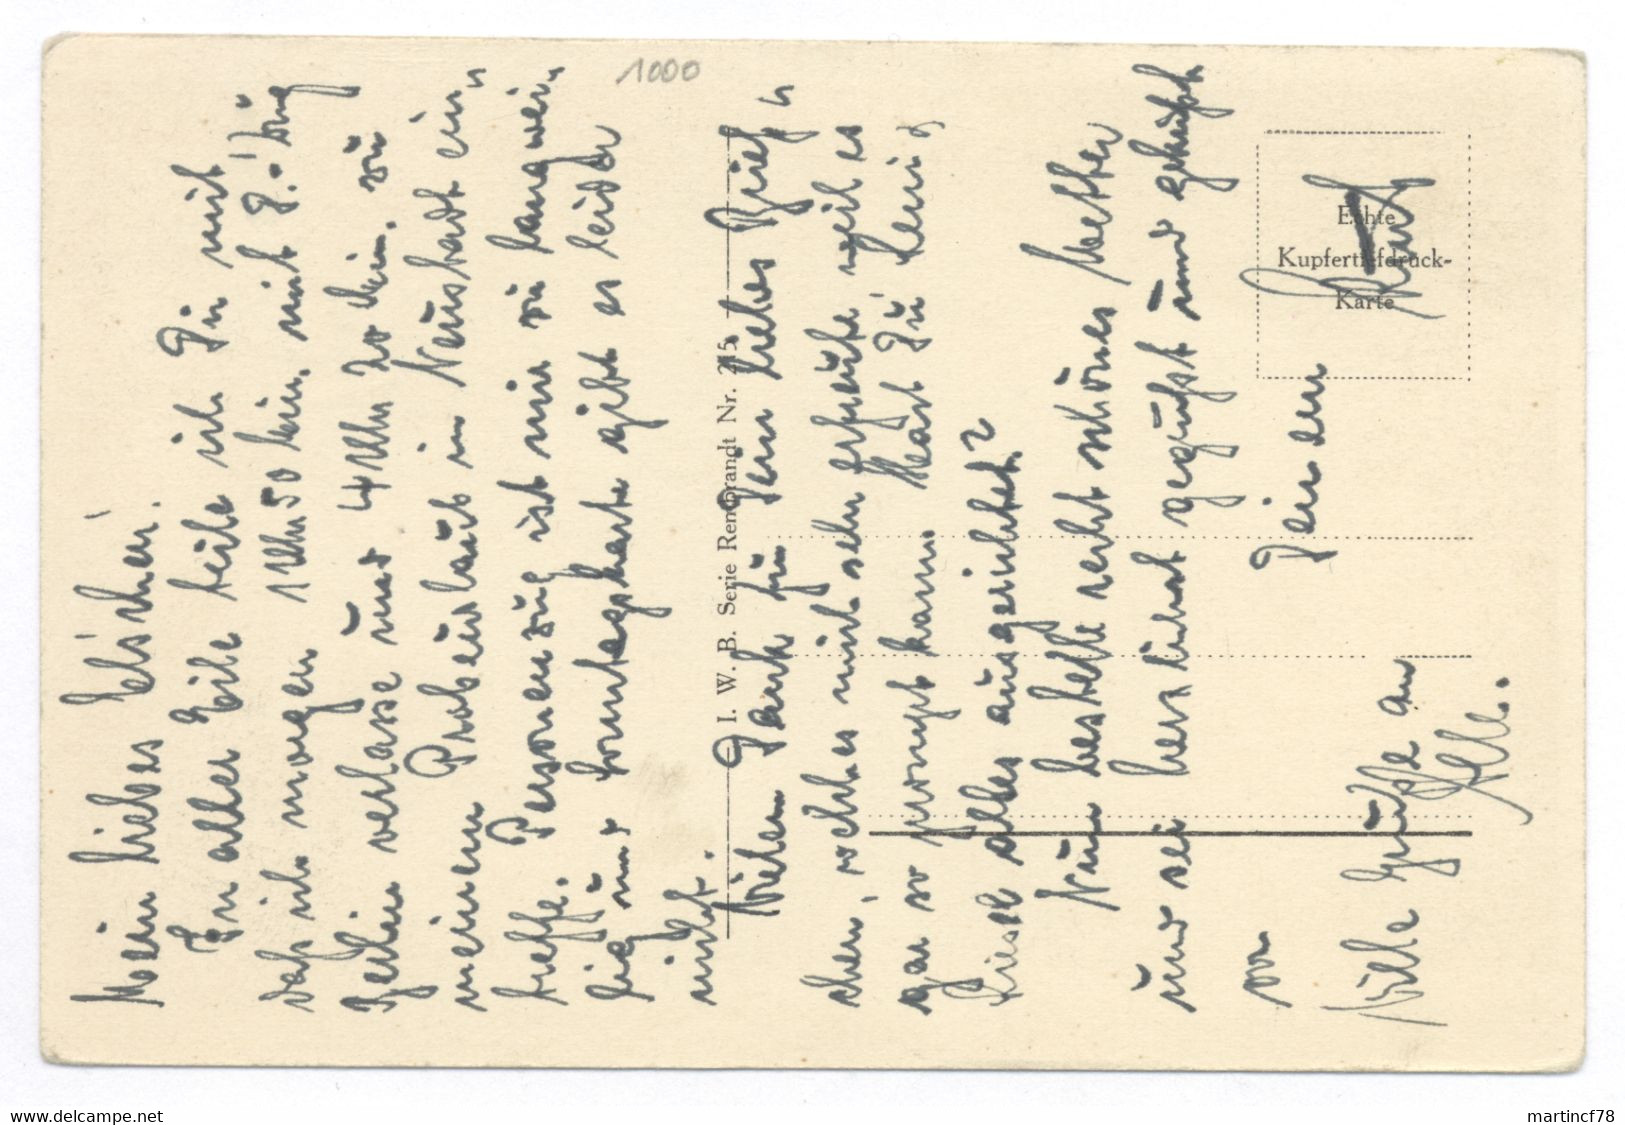 Mein liebes Elschen!
In aller Eile teile ich Dir mit
daß ich morgen 1 Uhr 50 Min. mit D.-Zug
Berlin verlasse und 4 Uhr 20 Min. zu
meinem Probeurlaub in Neustadt ein-
treffe. Personenzug ist mir zu langwei-
lig und Sonntagskarte gibt es leider
nicht.
Vielen Dank für Dein liebes Brief-
chen, welches mich sehr erfreute weil es
gar so prompt kam. Hast Du Deine
Liesel alles ausgerichtet?
Nun bestelle recht schönes Wetter
und sei herzlichst gegrüßt und geküßt
von Deinem
Kurt
Viele Grüße an
Alle.
1000
I. W. B. Serie Rembrandt Nr. 215
Echte
Kupfertiefdruck-
Karte
www.delcampe.net
martincf78